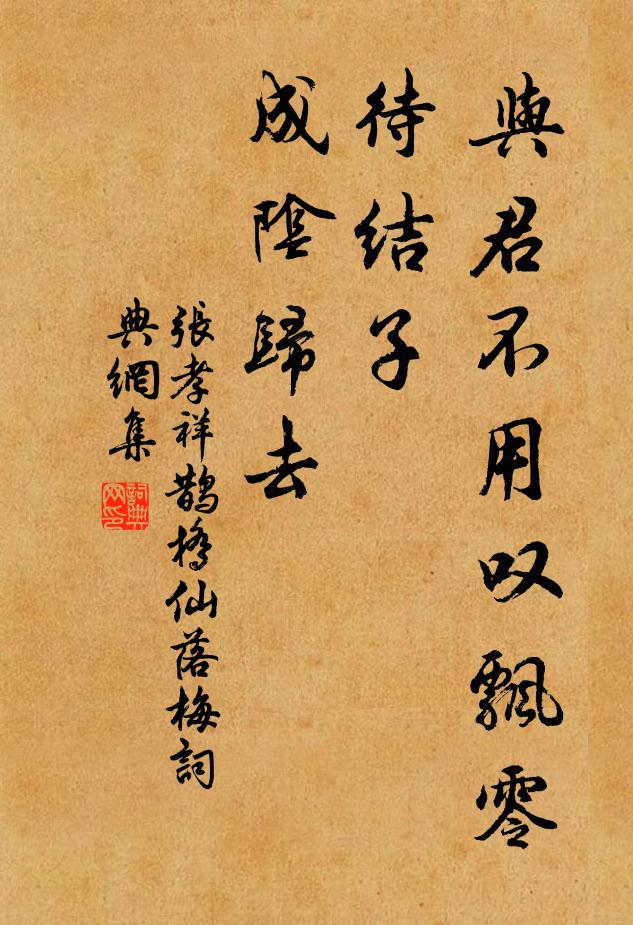 與君不用叹飄零
待結子
成陰歸去
張孝祥鵲橋仙落梅詞
典網集
詞典
网印